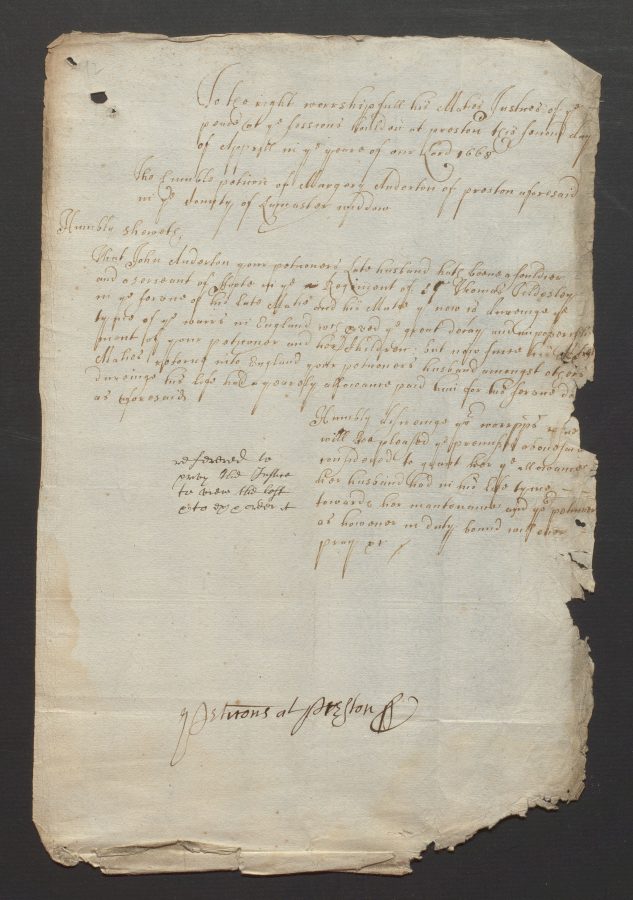 To the right worrshipfull his Maties Justices of ye
peace at ye sessions houlden at preston this second day
of Apprill in ye yeare of our Lord 1668
The humble petition of Margery Anderton of preston aforesaid
in ye County of Lancaster widdow
Humbly sheweth
That John Anderton your petitioners Late husband hath beene a souldier
and a servant of in ye Regiment of Sr Thomas Tildesley
in ye service of his late Matie and his Matie yt now is dureinge ye
tyme of ye warrs in England wch ye great decay and impoverish
ment of your petitioner and her Children but now since his
Maties returne into England your petitioners husband amongst others
dureinge his life had a yearely allowance paid him for his service
as aforesaid
Humbly desireinge yor worrpps
will bee pleased ye premisses
considered to grant her ye allowance
her husband had in his life tyme
towards her mantenance and yor petitioner
as however in duty bound will ever
pray &c
referered to
the Justice
to view the last
order
petitions at Preston